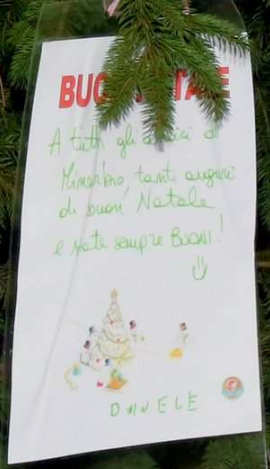 BUON NATALE
A tutti gli amici di
Minerbio tanti auguri
di buon Natale
e siate sempre BUONI!
DANIELE